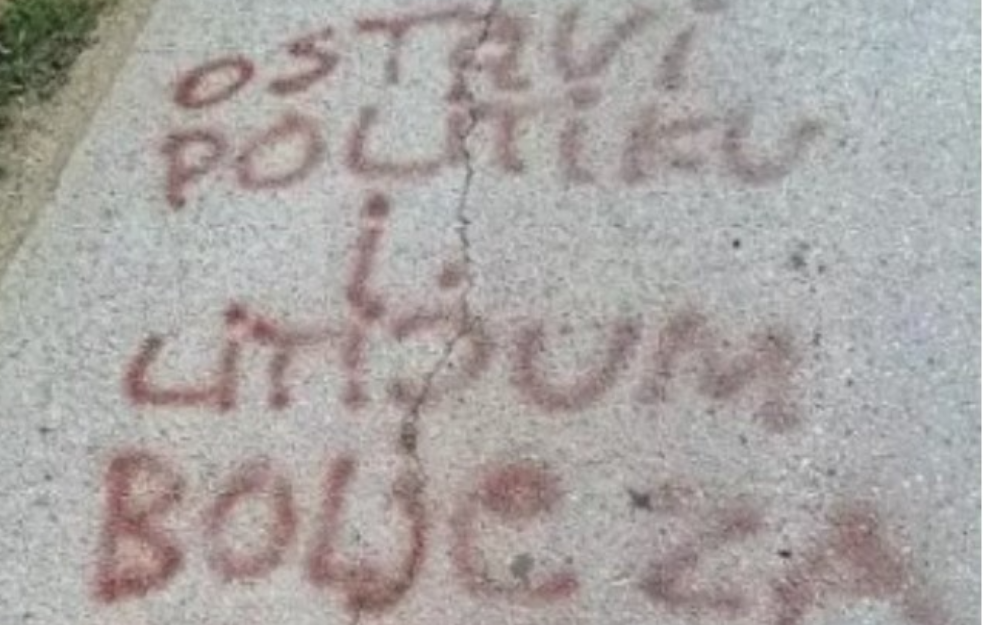 OSTAVi
POLiTiKU
i
LITIJUM
BOLJE ZA